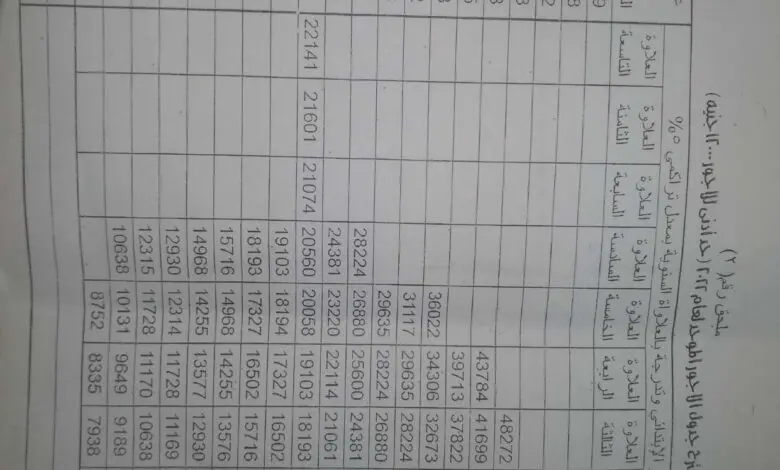 ملحق رقم (٢)
جدول الاجور الموحد لعام ٢٠٢٢ (حد أدنى للاجور ١٢٠٠٠ جنيه)
الابتدائي وتدرجه بالعلاواة السنوية بمعدل تراكمي ٥%
العلاوة الثالثة العلاوة الرابعة العلاوة الخامسة العلاوة السادسة العلاوة السابعة العلاوة الثامنة العلاوة التاسعة
48272
41699 43784
37822 39713
32673 34306 36022
28224 29635 31117
26880 28224 29635
24381 25600 26880 28224
21061 22114 23220 24381
18193 19103 20058 20560 21074 21601 22141
16502 17327 18194 19103
15716 16502 17327 18193
13576 14255 14968 15716
12930 13577 14255 14968
11169 11728 12314 12930
10638 11170 11728 12315
9189 9649 10131 10638
7938 8335 8752